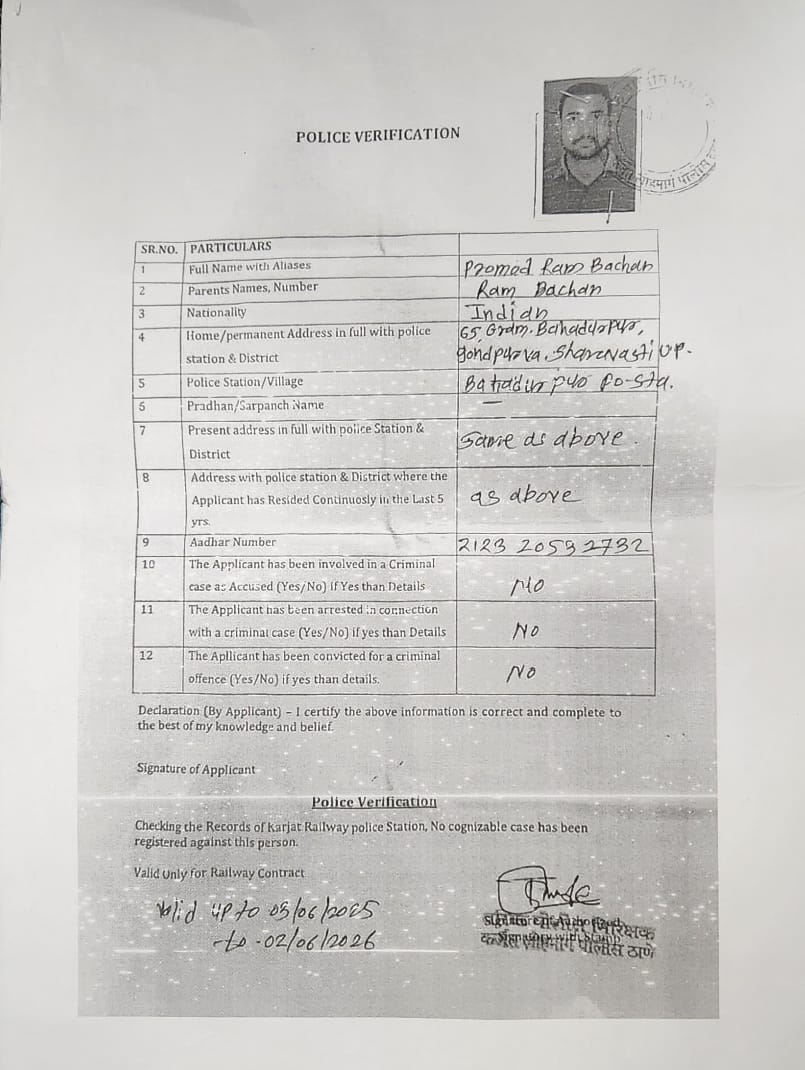 POLICE VERIFICATION
SR.NO. PARTICULARS
1 Full Name with Aliases Promod Ram Bachan
2 Parents Names, Number Ram Bachan
3 Nationality Indian
4 Home/permanent Address in full with police station & District 65, Gram. Bahadurpur,
UP.
5 Police Station/Village
6 Pradhan/Sarpanch Name —
7 Present address in full with police Station &
District same as above.
8 Address with police station & District where the
Applicant has Resided Continuosly in the Last 5 as above
yrs.
9 Aadhar Number 2123 2059 2732
10 The Applicant has been involved in a Criminal
case as Accused (Yes/No) if Yes than Details NO
11 The Applicant has been arrested in connection
with a criminal case (Yes/No) if yes than Details No
12 The Apllicant has been convicted for a criminal
offence (Yes/No) if yes than details. No
Declaration (By Applicant) – I certify the above information is correct and complete to
the best of my knowledge and belief.
Signature of Applicant
Police Verification
Checking the Records of Karjat Railway police Station, No cognizable case has been
registered against this person.
Valid Only for Railway Contract
Valid up to 03/06/2025
-to -02/06/2026